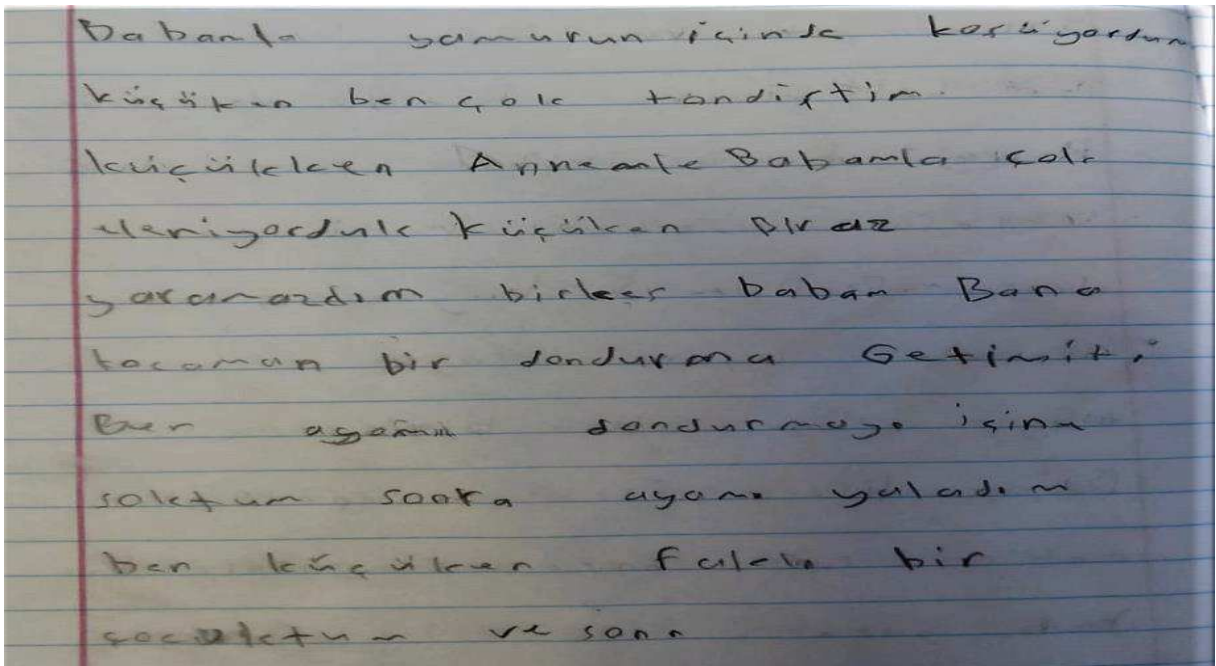 Babamla yamurun içinde kosüyordum
küçüken ben çok
küçükken Annemle Babamla çok
küçüken Biraz
yaramazdım birkes babam Bana
kocaman bir dondurma Getimiti
Ben ayamı dondurmayo içine
soktum sonra ayamı yaladım
ben küçüken farklı bir
çocuktum ve son